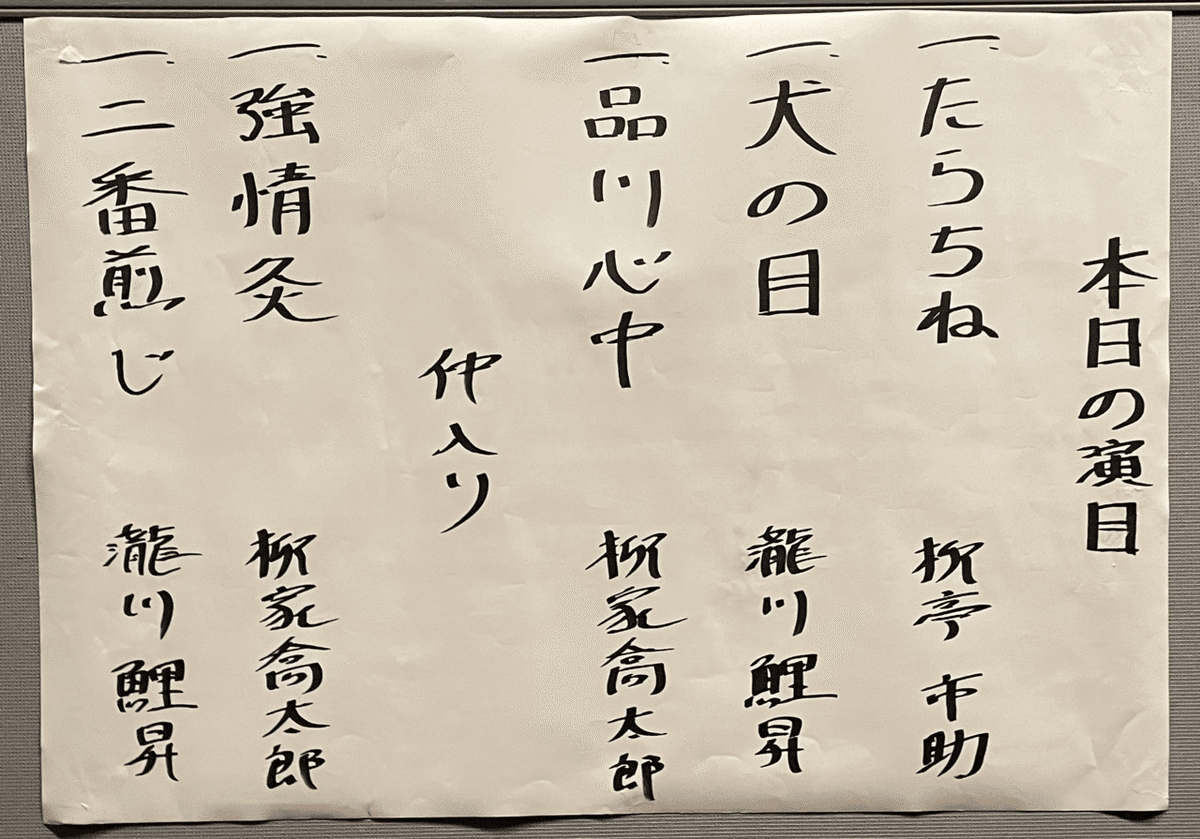 本日の演目
一、たらちね 柳亭市助
一、犬の目 瀧川鯉昇
一、品川心中 柳家喬太郎
仲入り
一、強情灸 柳家喬太郎
一、二番煎じ 瀧川鯉昇